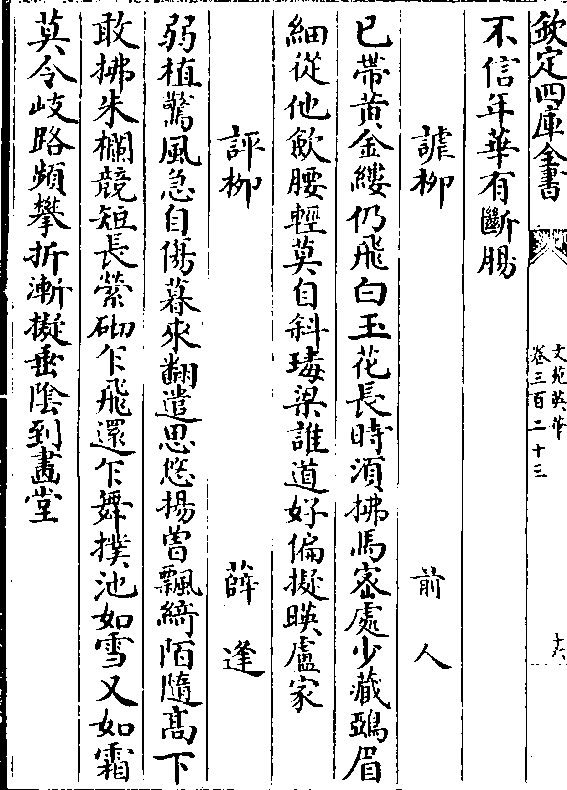 欽定四庫全書
文苑英華
卷三百二十三
十六
不信年華有斷腸
謔柳
前人
已帶黄金縷仍飛白玉花長時須拂馬密處少藏鵶眉
細從他歛腰輕莫自斜瑇梁誰道好偏擬暎盧家
評柳
薛逢
弱植驚風急自傷暮來翻遣思悠揚曾飄綺陌隨髙下
敢拂朱欄競短長縈砌乍飛還乍舞撲池如雪又如霜
莫令岐路頻攀折漸擬垂陰到畫堂